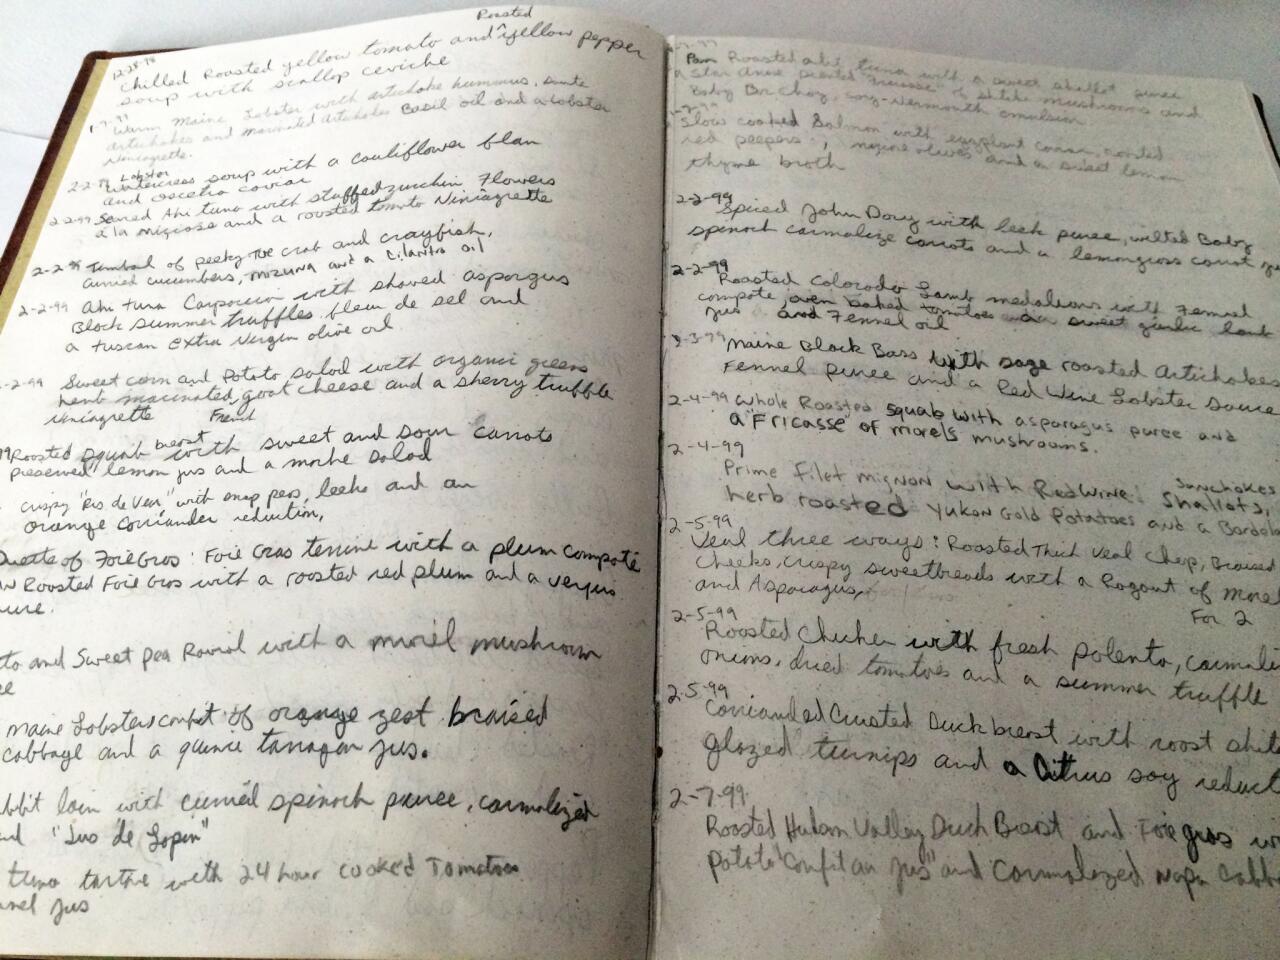 Roasted
12-28-98
Chilled Roasted yellow tomato and ^ yellow pepper
soup with scallop ceviche
1-7-99
Warm Maine Lobster with artichoke hummus,
artichokes and marinated Artichokes Basil oil and a lobster
Viniagrette.
2-2-99 Lobster
Watercress soup with a cauliflower flan
and oscetra caviar
2-2-99 Seared Ahi tuna with stuffed zucchin Flowers
a la nicioise and a roasted tomato Viniagrette
2-2-99 Timbal of peeky toe crab and crayfish,
curried cucumbers, mizuna and a Cilantro oil
2-2-99 Ahi tuna Carpaccio with shaved aspargus
Black summer truffles, fleur de sel and
a tuscan extra Virgin olive oil
-2-99 Sweet corn and Potato salad with organic greens
herb marinated, goat cheese and a sherry truffle
Viniagrette
99 Roasted squab breast with sweet and sour carrots
preserved lemon jus and a mache salad
crispy "Ris de Veau" with snap peas, leeks and an
orange coriander reduction,
Duette of Foie Gras: Foie Gras terrine with a plum compote
Roasted Foie Gras with a roasted red plum and a verjus
to and Sweet Pea Raviol with a morel mushroom
maine Lobster confit of orange zest braised
cabbage and a quince tarragon jus.
bbit loin with curried spinach puree, carmalized
"Jus de Lapin"
tuna tartre with 24 hour cooked Tomatoes
nel jus
Roasted ahi tuna with a sweet shallot puree
a star anise "fricasse" of shitake mushrooms and
Baby Bok Choy, soy-vermouth emulsion
Slow cooked Salmon with eggplant caviar, roasted
red peppers, nicoise olives and a sweet lemon
thyme broth
2-2-99
Spiced John Dory with leek puree, wilted Baby
spinach carmalize carrots and a lemongrass carrot
2-2-99
Roasted Colorado Lamb medalions with Fennel
compote, oven baked tomatoes a sweet garlic lamb
jus and Fennel oil
2-3-99
Maine Black Bass with sage roasted Artichokes
Fennel puree and a Red Wine Lobster sauce
2-4-99 Whole Roasted squab with asparagus puree and
a "Fricasse" of morels mushrooms.
2-4-99
Prime filet mignon with Red Wine Shallots,
Sunchokes
herb roasted Yukon Gold Potatoes and a Bordel
2-5-99
Veal three ways: Roasted Thick Veal Chop, Braised
Cheeks, crispy sweetbreads with a Ragout of Morel
and Asparagus,
For 2
2-5-99
Roasted Chicken with fresh polenta, carmali
onions, dried tomatoes and a summer truffle
2-5-99
Coriander Crusted Duck breast with roast shit
glazed turnips and a Citrus soy reduct
2-7-99
Roasted Hudson Valley Duck Breast and Foie gras w
Potato "confit an jus" and Carmalized napa cabb